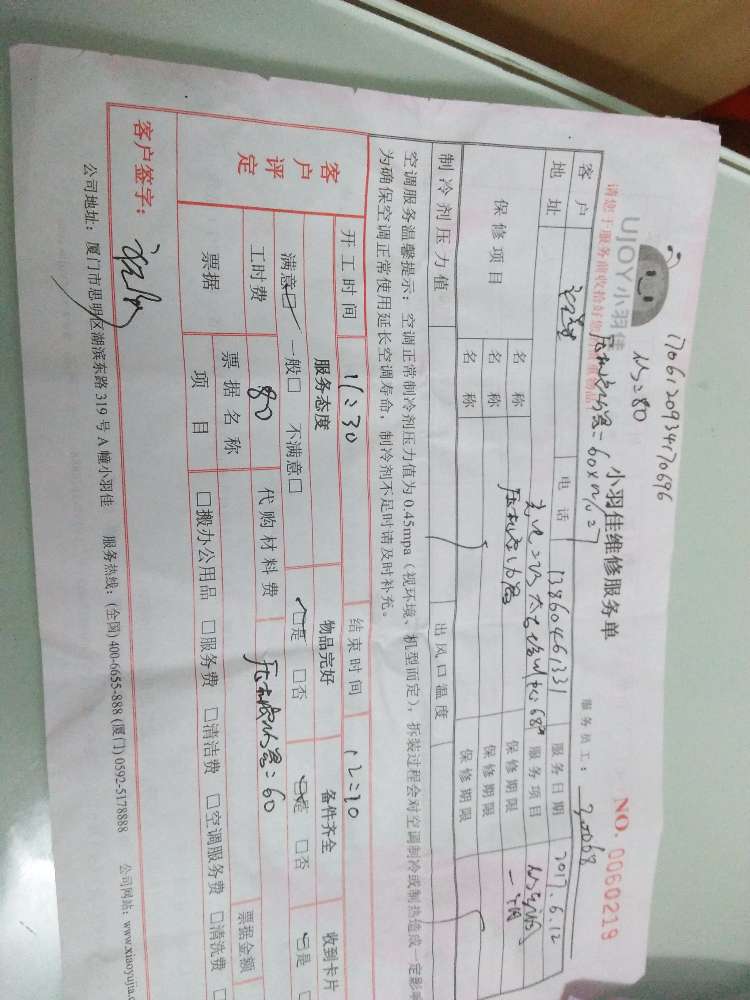 170612093470696
UJOY小羽佳
小羽佳维修服务单
NO. 0060219
服务员工：
请您于服务前收拾好您的贵重物品！
=80
=60×
客户
电话 13860461331
服务日期 2017.6.12
地址
服务项目
保修项目
名称
保修期限
名称
保修期限
名称
保修期限
制冷剂压力值
出风口温度
空调服务温馨提示：空调正常制冷剂压力值为0.45mpa（视环境、机型而定），拆装过程会对空调制冷或制热造成一定影响
为确保空调正常使用延长空调寿命，制冷剂不足时请及时补充。
客户评定
开工时间 11:30
结束时间 12:10
服务态度
物品完好
备件齐全
收到卡片
满意□ 一般□ 不满意□
□是 □否
□是 □否
□是
工时费 80
代购材料费
=60
票据
票据名称
票据金额
项目
□搬办公用品 □服务费 □清洁费 □空调服务费 □清洗费
客户签字：
公司地址：厦门市思明区湖滨东路319号A幢小羽佳 服务热线：(全国) 400-6655-888 (厦门) 0592-5178888 公司网站：www.xiaoyujia.c